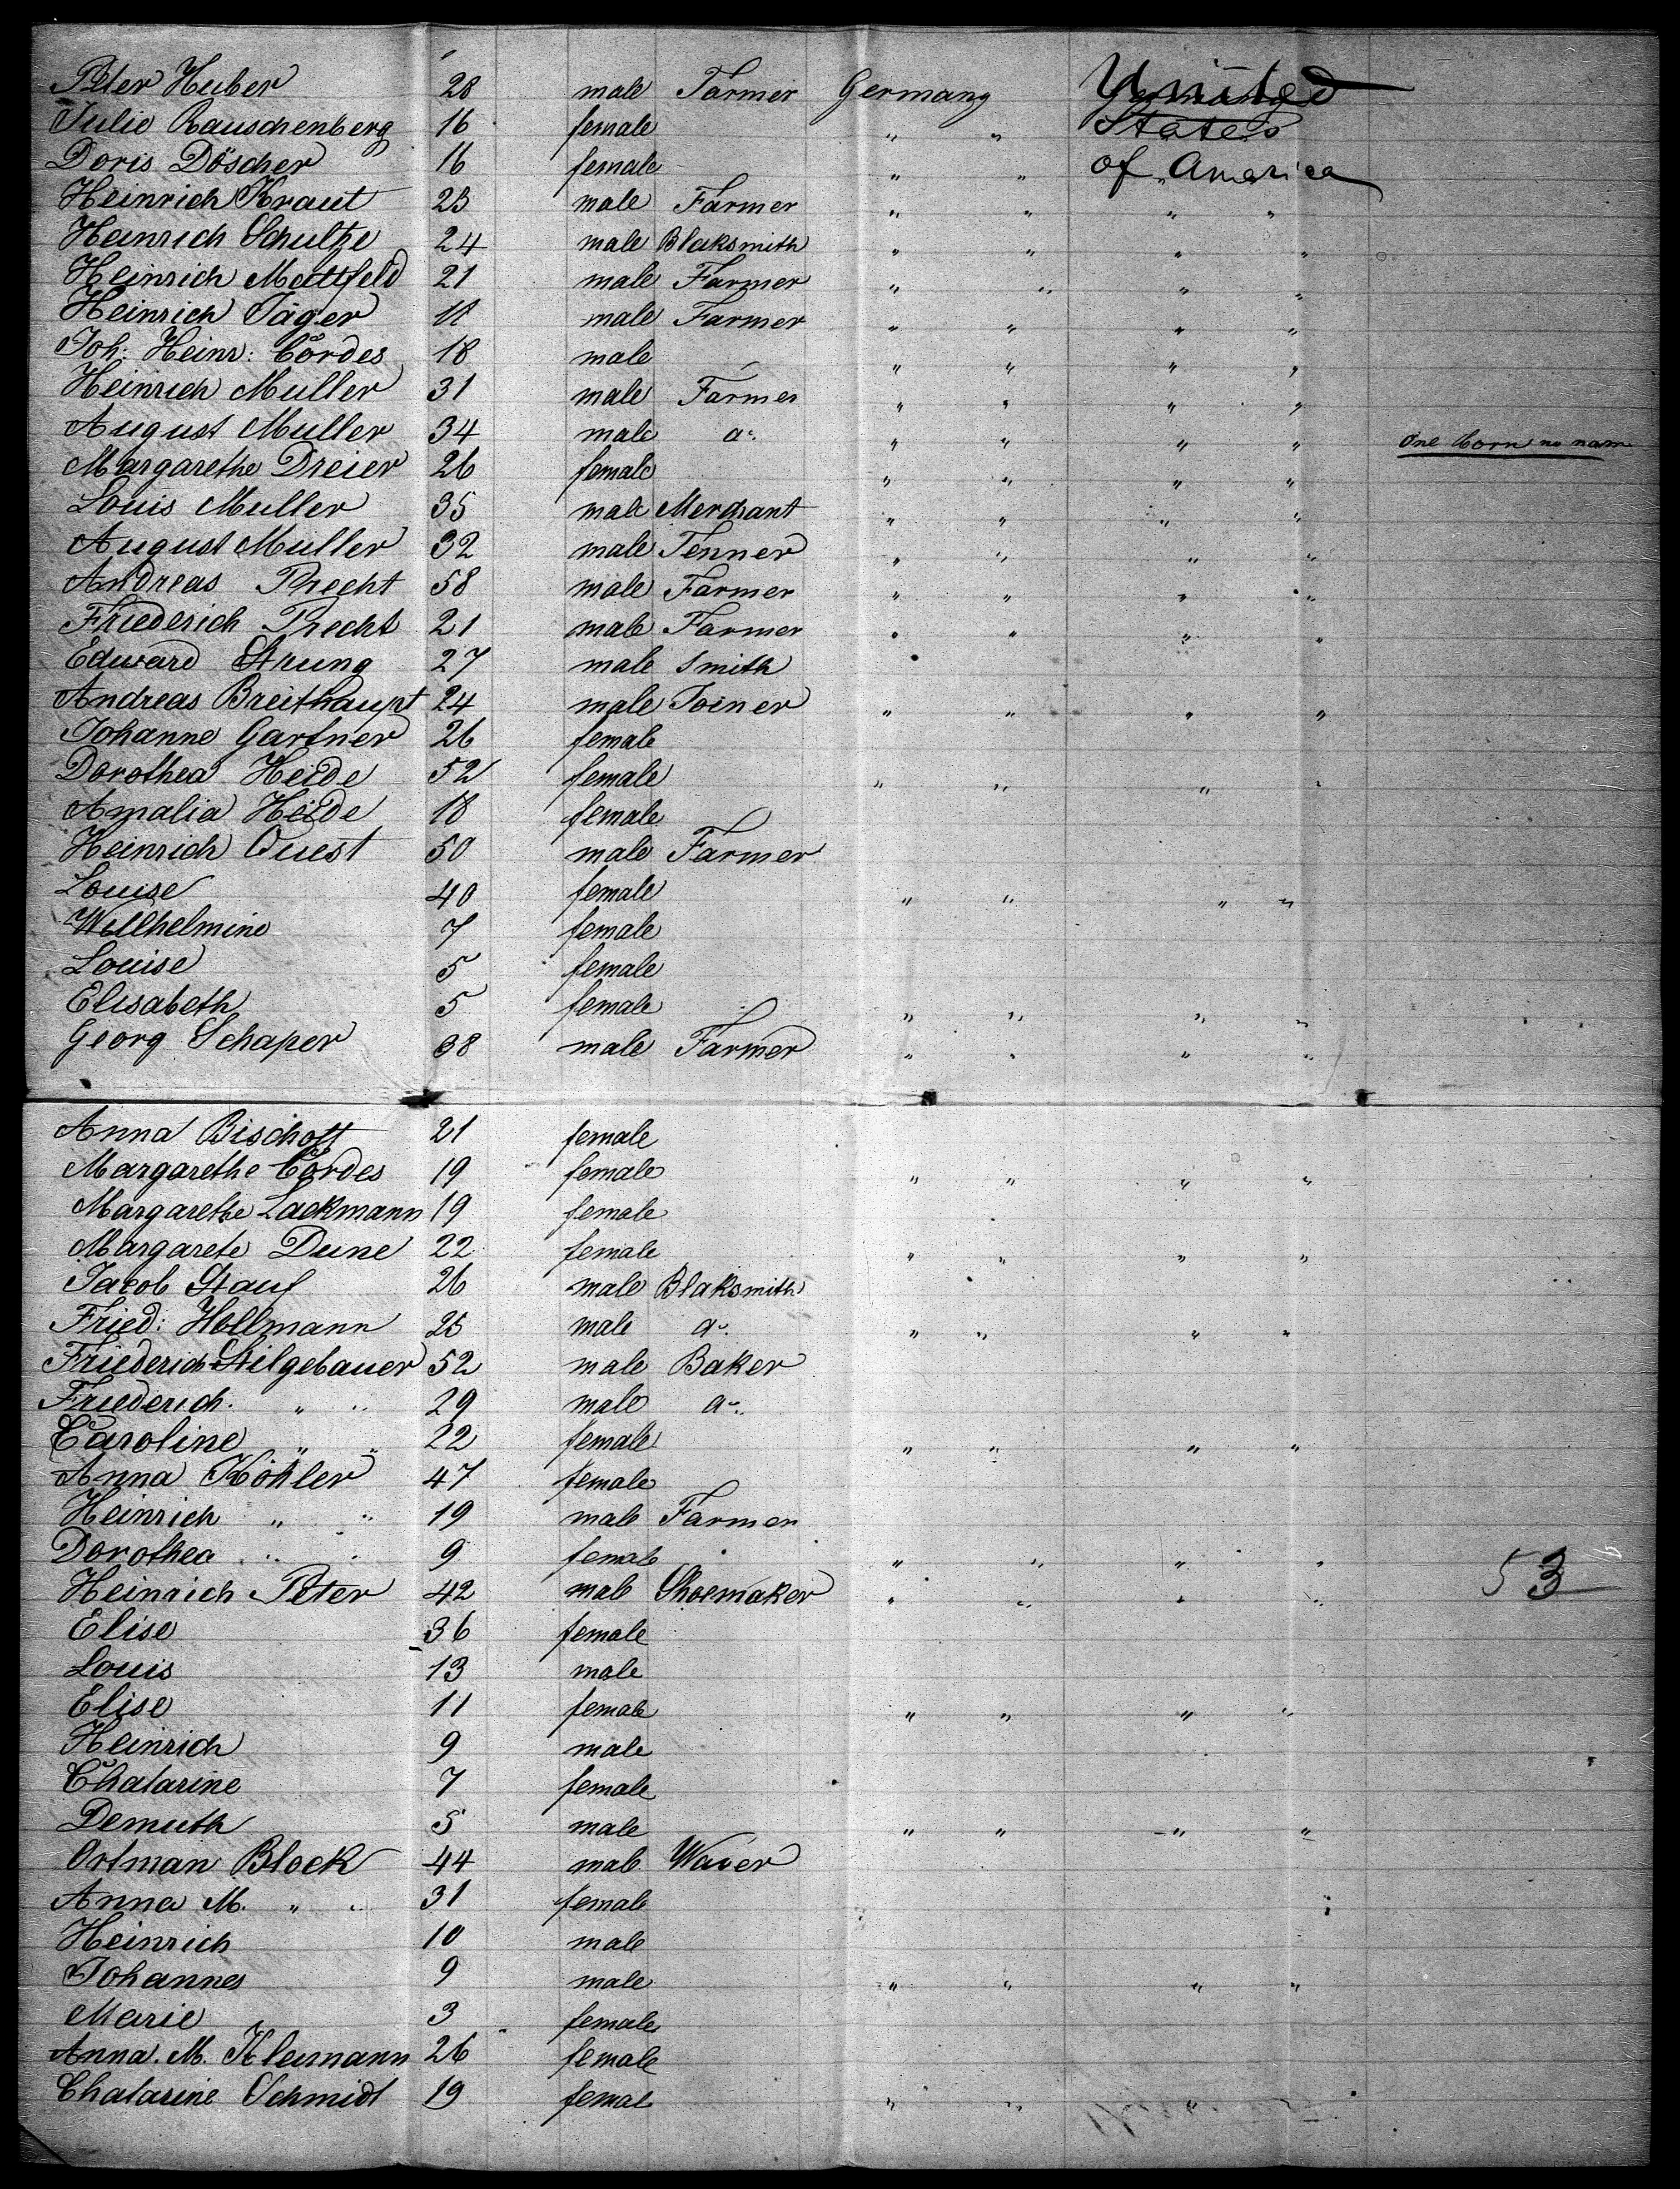 Peter Huber 28 male Farmer Germany United
Julie Rauschenberg 16 female " " States
Doris Döscher 16 female " " of America
Heinrich Kraut 23 male Farmer " " " "
Heinrich Schultze 24 male Blaksmith " " " "
Heinrich Mattfeld 21 male Farmer " " " "
Heinrich Jäger male Farmer " " " "
Joh: Heinr: Cördes 18 male " " " "
Heinrich Muller 31 male Farmer " " " "
August Muller 34 male a: " " " " One born no nam
Margarethe Dreier 26 female " " " "
Louis Muller 35 male Merchant " " " "
August Muller 32 male Tenner " " " "
Andreas Precht 58 male Farmer " " " "
Friederich Precht 21 male Farmer " " " "
Edward Strung 27 male Smith
Andreas Breithaupt 24 male Joiner " " " "
Johanne Gartner 26 female
Dorothea Heide 52 female " " " "
Amalia Heide 18 female
Heinrich Quest 50 male Farmer
Louise 40 female " " " "
Willhelmine 7 female
Louise 5 female
Elisabeth 5 female " " " "
Georg Schaper 38 male Farmer " " " "
Anna Bischoff 21 female
Margarethe Cördes 19 female " " " "
Margarethe Lackmann 19 female
Margarete Dune 22 female " " " "
Jacob Stauf 26 male Blaksmith
Fried: Hollmann 25 male a: " " " "
Friederich Stilgebauer 52 male Baker
Friederich " " 29 male a:
Caroline " " 22 female " " " "
Anna Köhler 47 female
Heinrich " " 19 male Farmer
Dorothea " " 9 female " " " " 53
Heinrich Peter 42 male Shoemaker " " " "
Elise 36 female
Louis 13 male
Elise 11 female " " " "
Heinrich 9 male
Chatarine 7 female
Demuth 5 male " " " "
Ortman Block 44 male Waver
Anna M. " " 31 female
Heinrich 10 male
Johannes 9 male " " " "
Marie 3 female
Anna. M. Klemann 26 female
Chatarine Schmidt 19 female " " "